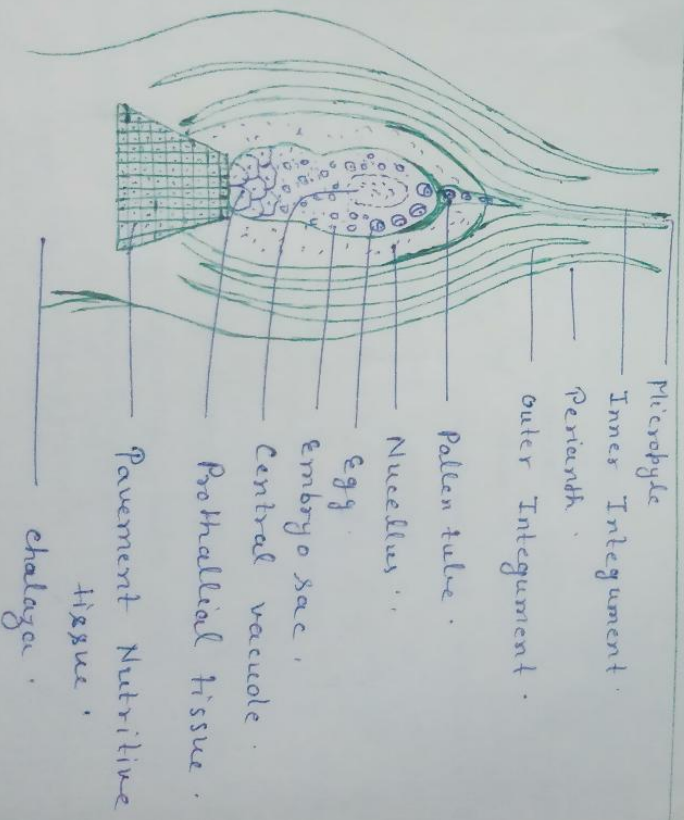 Micropyle
Inner Integument.
Perianth.
Outer Integument.
Pollen tube.
Nucellus.
Egg.
Embryo sac.
Central vacuole.
Prothallial tissue.
Pavement Nutritive
tissue.
chalaza.